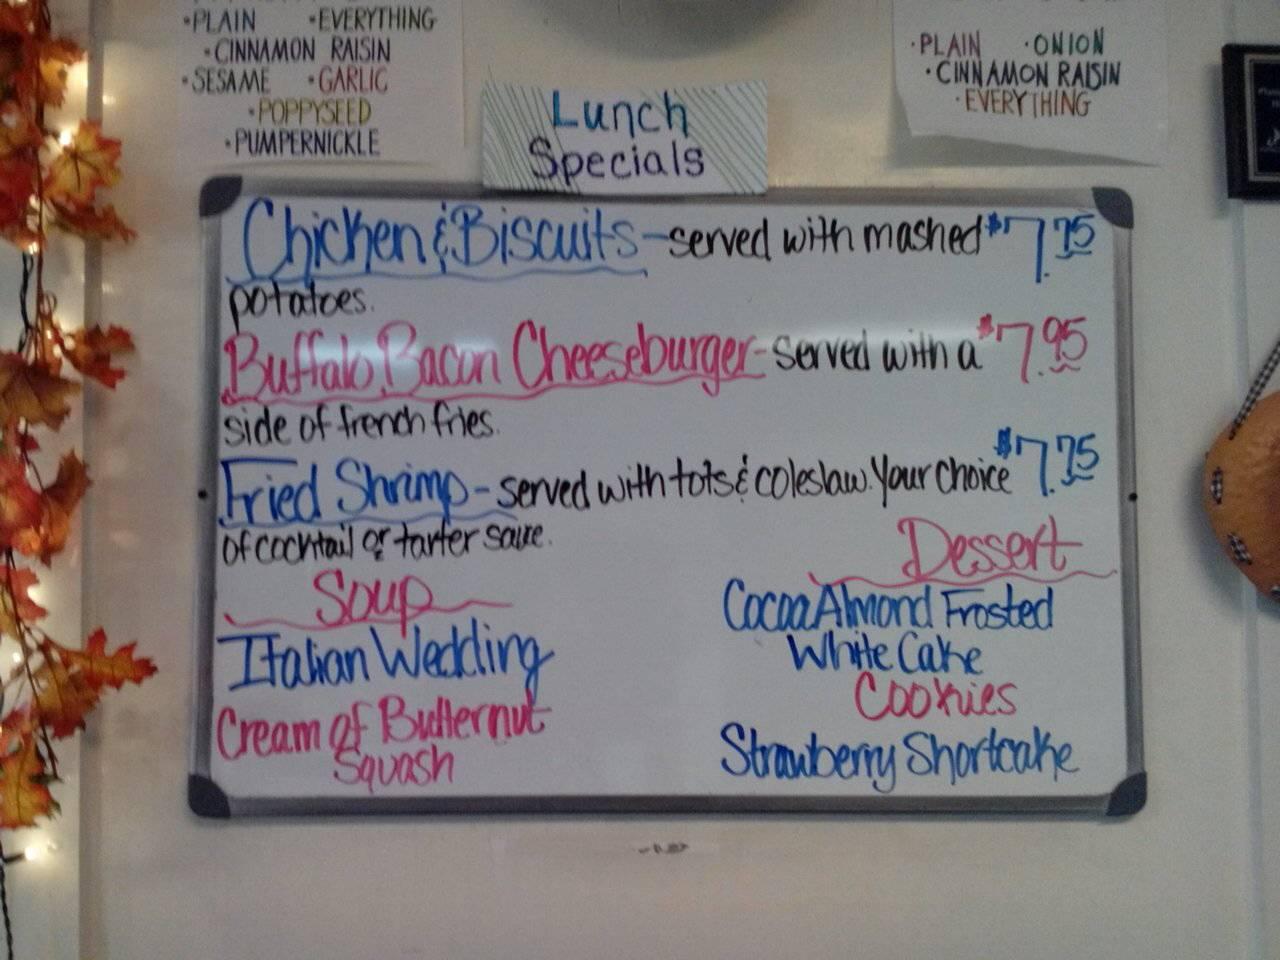 •PLAIN •EVERYTHING
•CINNAMON RAISIN
•SESAME •GARLIC
•POPPYSEED
•PUMPERNICKLE
•PLAIN •ONION
•CINNAMON RAISIN
•EVERYTHING
Lunch
Specials
Chicken & Biscuits - served with mashed $7.75
potatoes.
Buffalo Bacon Cheeseburger - served with a $7.95
side of french fries.
Fried Shrimp - served with tots & coleslaw. Your choice $7.75
of cocktail or tarter sauce.
Soup
Italian Wedding
Cream of Butternut
Squash
Dessert
Cocoa Almond Frosted
White Cake
Cookies
Strawberry Shortcake